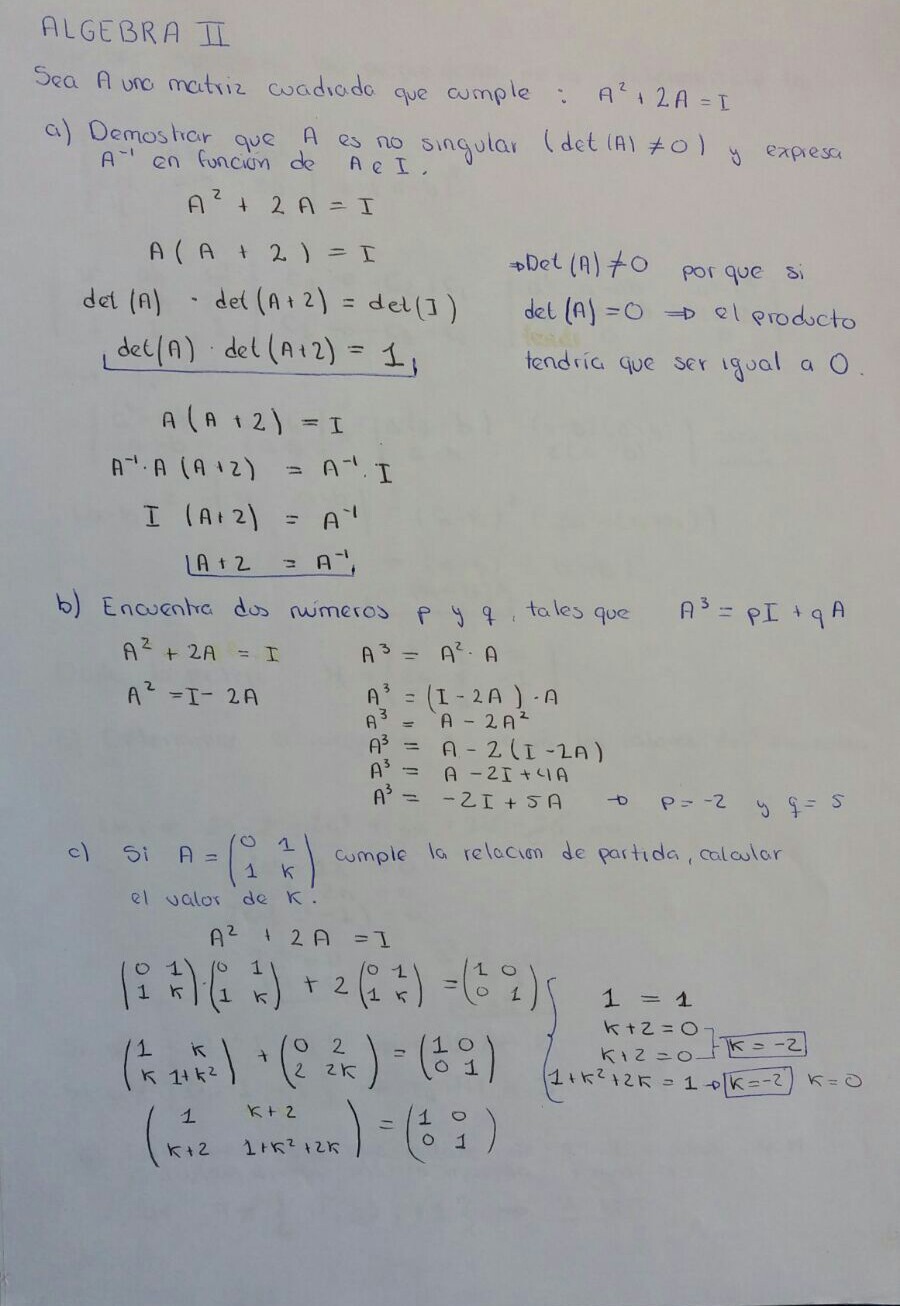 ALGEBRA II
Sea A una matriz cuadrada que cumple : A² + 2A = I
a) Demostrar que A es no singular (det (A) ≠ 0) y expresa
A⁻¹ en función de A e I.
A² + 2A = I
A(A + 2) = I
det (A) · det (A+2) = det(I)
det(A) · det(A+2) = 1
⇒ Det (A) ≠ 0 por que si
det (A) = 0 ⇒ el producto
tendría que ser igual a 0.
A(A+2) = I
A⁻¹·A (A+2) = A⁻¹·I
I (A+2) = A⁻¹
A+2 = A⁻¹
b) Encuentra dos números p y q, tales que A³ = pI + qA
A² + 2A = I
A² = I - 2A
A³ = A²·A
A³ = (I - 2A)·A
A³ = A - 2A²
A³ = A - 2(I - 2A)
A³ = A - 2I + 4A
A³ = -2I + 5A → p = -2 y q = 5
c) Si A = (0 1
1 K) cumple la relacion de partida, calcular
el valor de K.
A² + 2A = I
(0 1 1 K)·(0 1 1 K) + 2(0 1 1 K) = (1 0 0 1)
(1 K K 1+K²) + (0 2 2 2K) = (1 0 0 1)
(1 K+2 K+2 1+K²+2K) = (1 0 0 1)
1 = 1
K+2 = 0
K+2 = 0 K = -2
1+K²+2K = 1 → K=-2 K=0